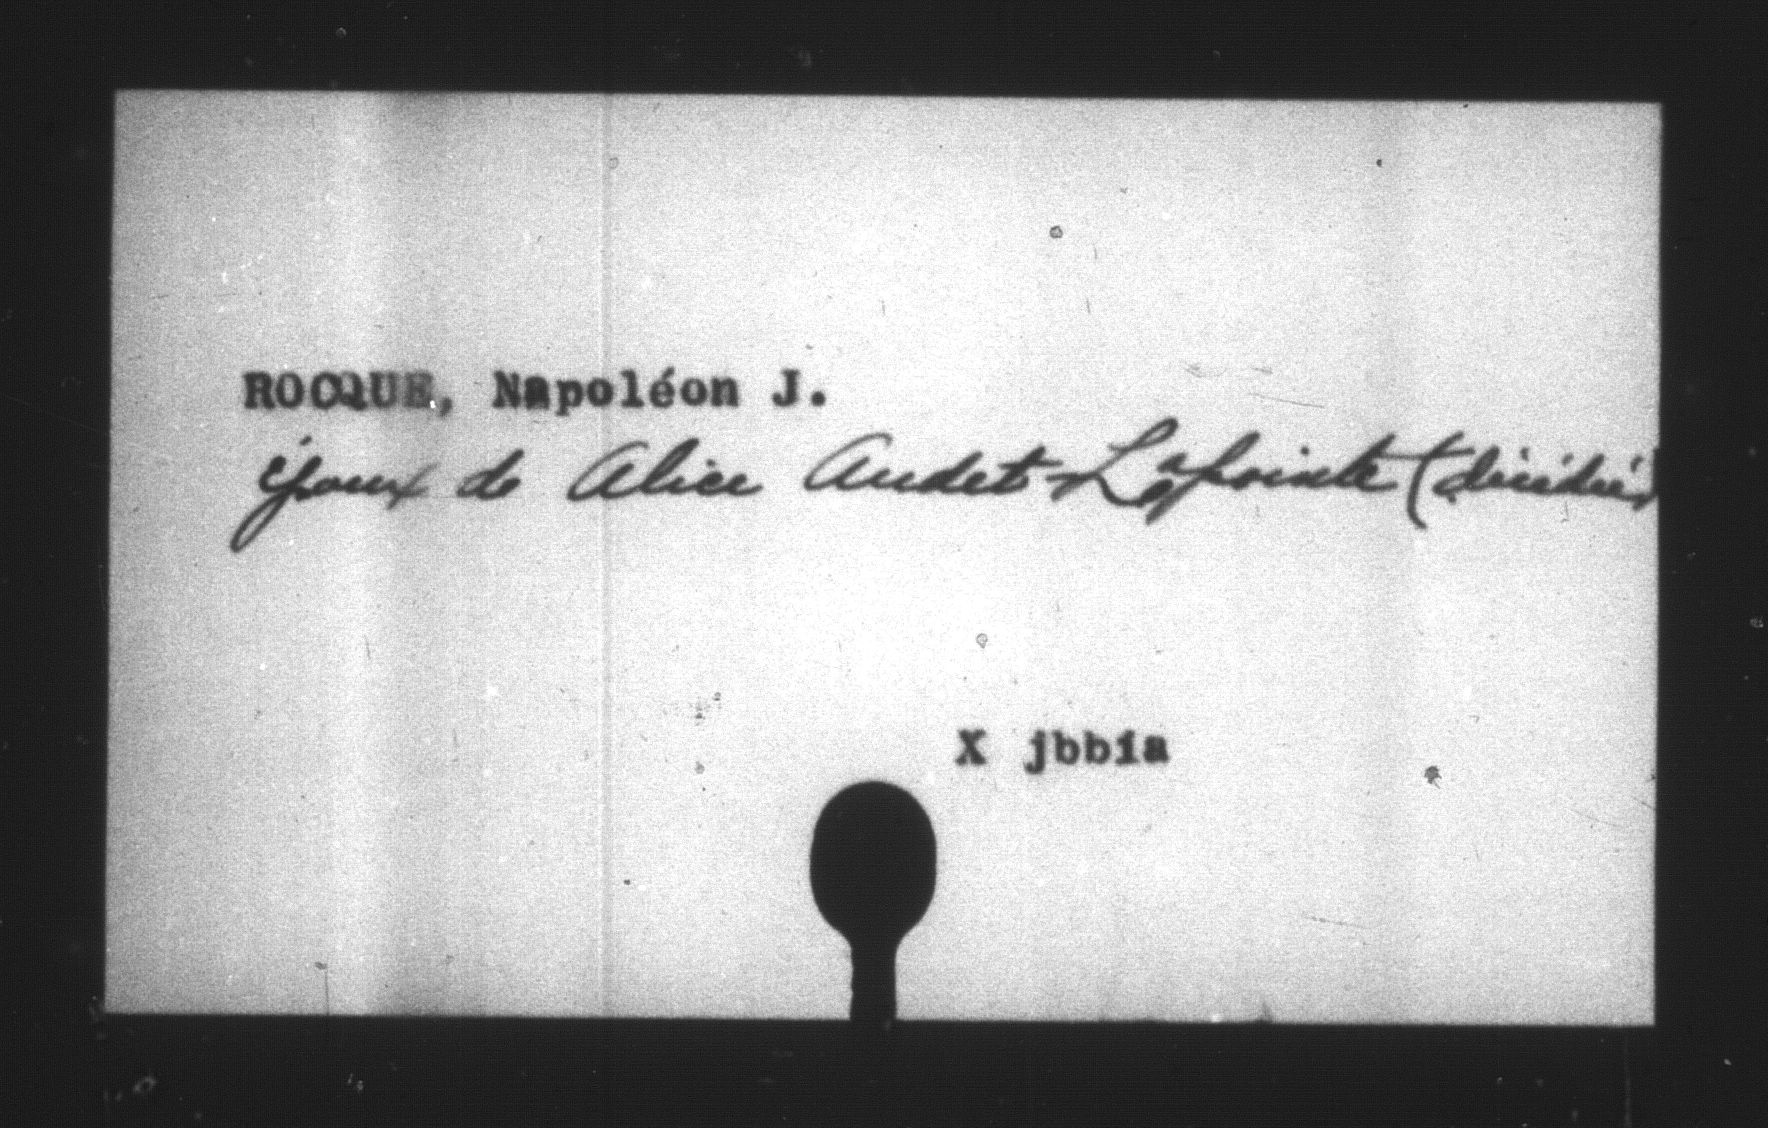 ROCQUE, Napoléon J.
époux de Alice Audet-Lapointe (décédée)
X jbbia